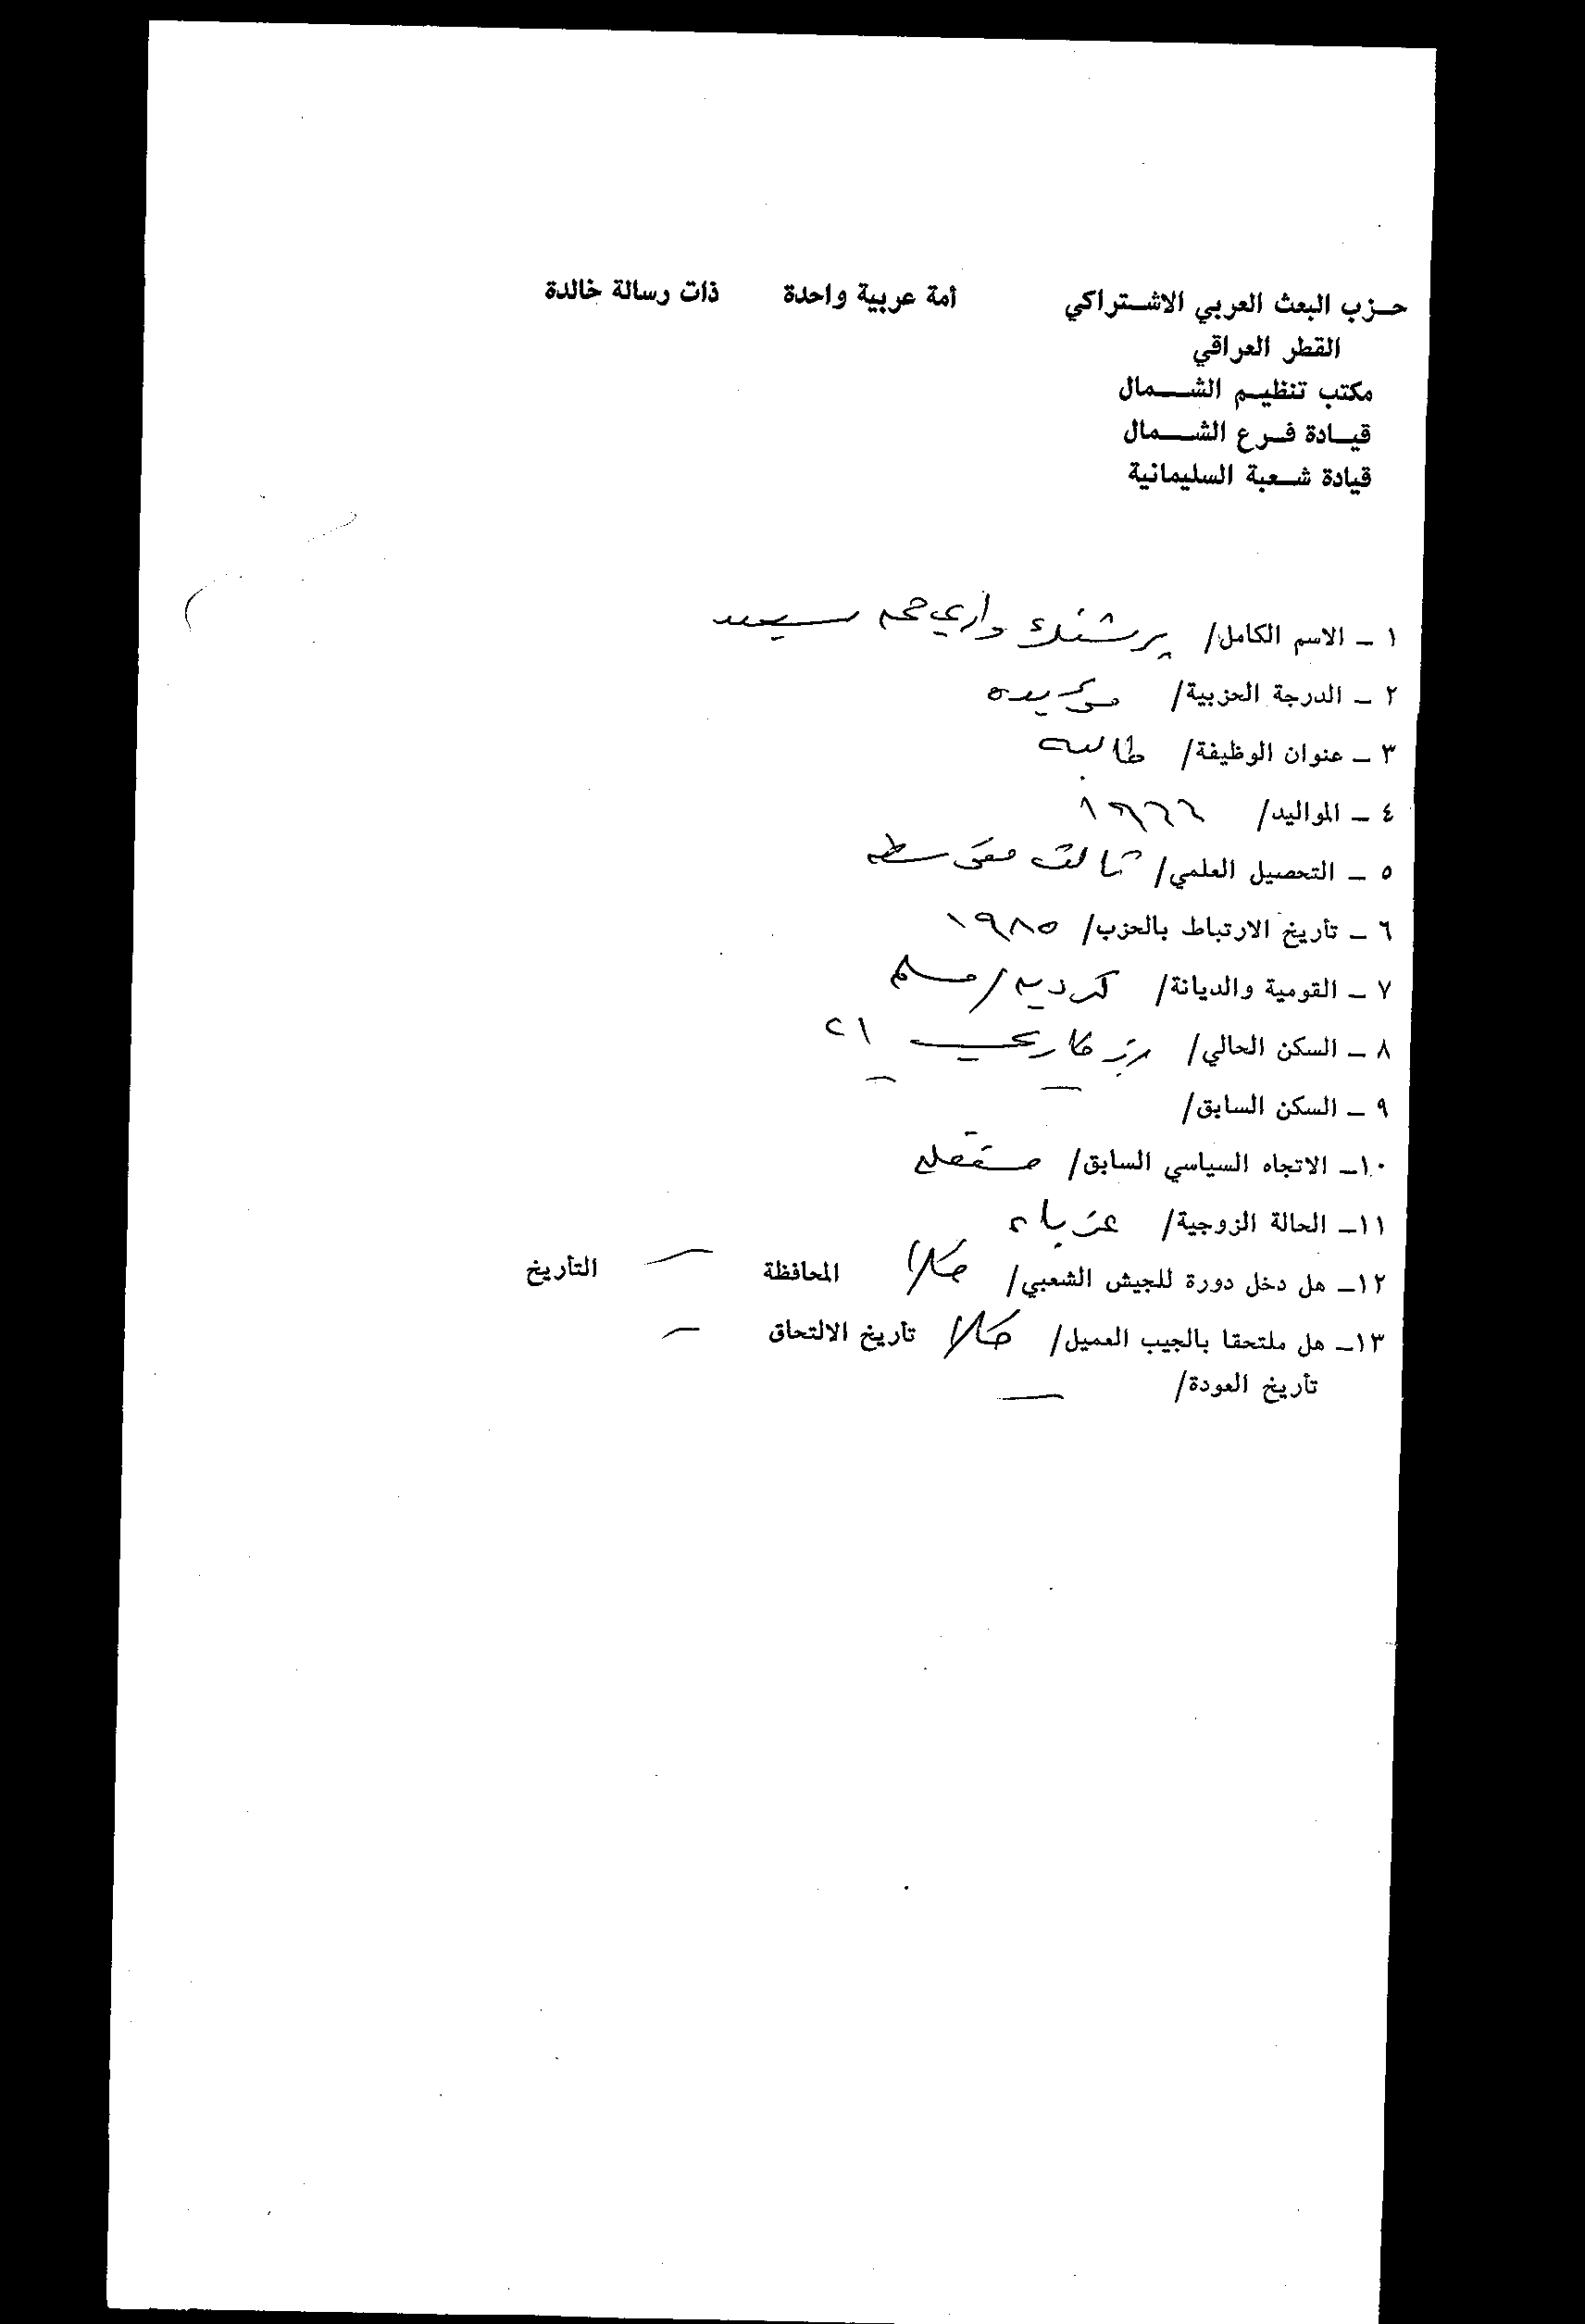 حزب البعث العربي الاشتراكي أمة عربية واحدة ذات رسالة خالدة
القطر العراقي
مكتب تنظيم الشمال
قيادة فرع الشمال
قيادة شعبة السليمانية
١ - الاسم الكامل/ پرشنك حمه سعيد
٢ - الدرجة الحزبية/ مؤيده
٣ - عنوان الوظيفة/ طالبه
٤ - المواليد/ ١٩٦٦
٥ - التحصيل العلمي/ ثالث متوسطه
٦ - تأريخ الارتباط بالحزب/ ١٩٨٥
٧ - القومية والديانة/ كرديه / مسلم
٨ - السكن الحالي/ رزكاري ٢١
٩ - السكن السابق/
١٠- الاتجاه السياسي السابق/ مستقله
١١- الحالة الزوجية/ عزباء
١٢- هل دخل دورة للجيش الشعبي/ كلا المحافظة — التأريخ
١٣- هل ملتحقا بالجيب العميل/ كلا تأريخ الالتحاق —
تأريخ العودة/ —